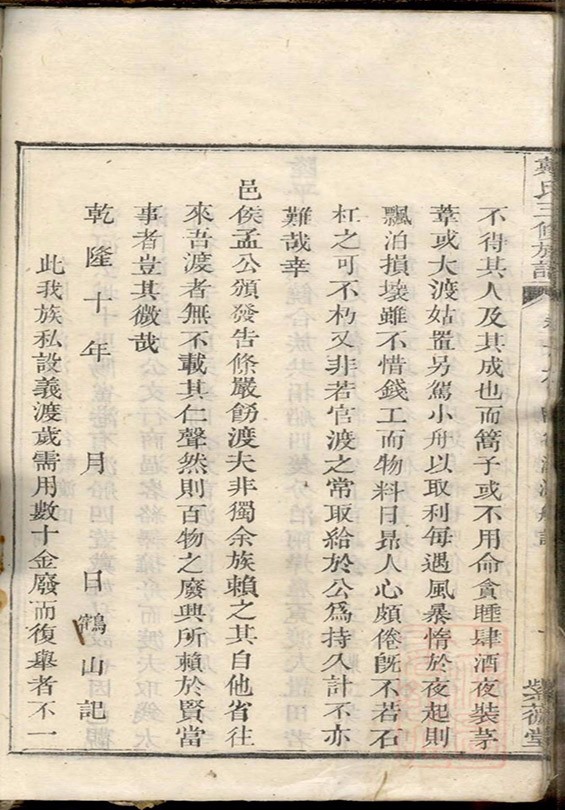 氏三修族譜
紫薇堂
不得其人及其成也而篙子或不用命貪睡肆酒夜裝茅
葦或大渡姑置另駕小舟以取利每遇風暴惰於夜起則
飄泊損壞雖不惜錢工而物料日昂人心頗倦旣不若石
杠之可不朽又非若官渡之常取給於公爲持久計不亦
難哉幸
邑侯孟公頒發告條嚴飭渡夫非獨余族賴之其自他省往
來吾渡者無不載其仁聲然則百物之廢興所賴於賢當
事者豈其微哉
乾隆十年　月　日鶴山記
此我族私設義渡歲需用數十金廢而復舉者不一